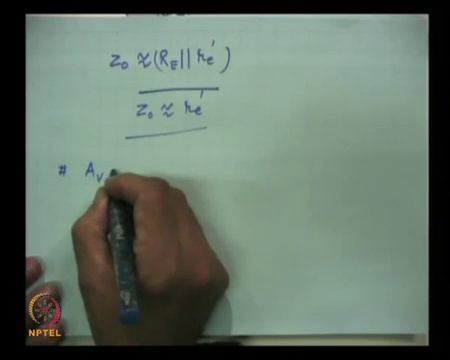 Zo ≈ (RE || re')
Zo ≈ re'
# Av
NPTEL